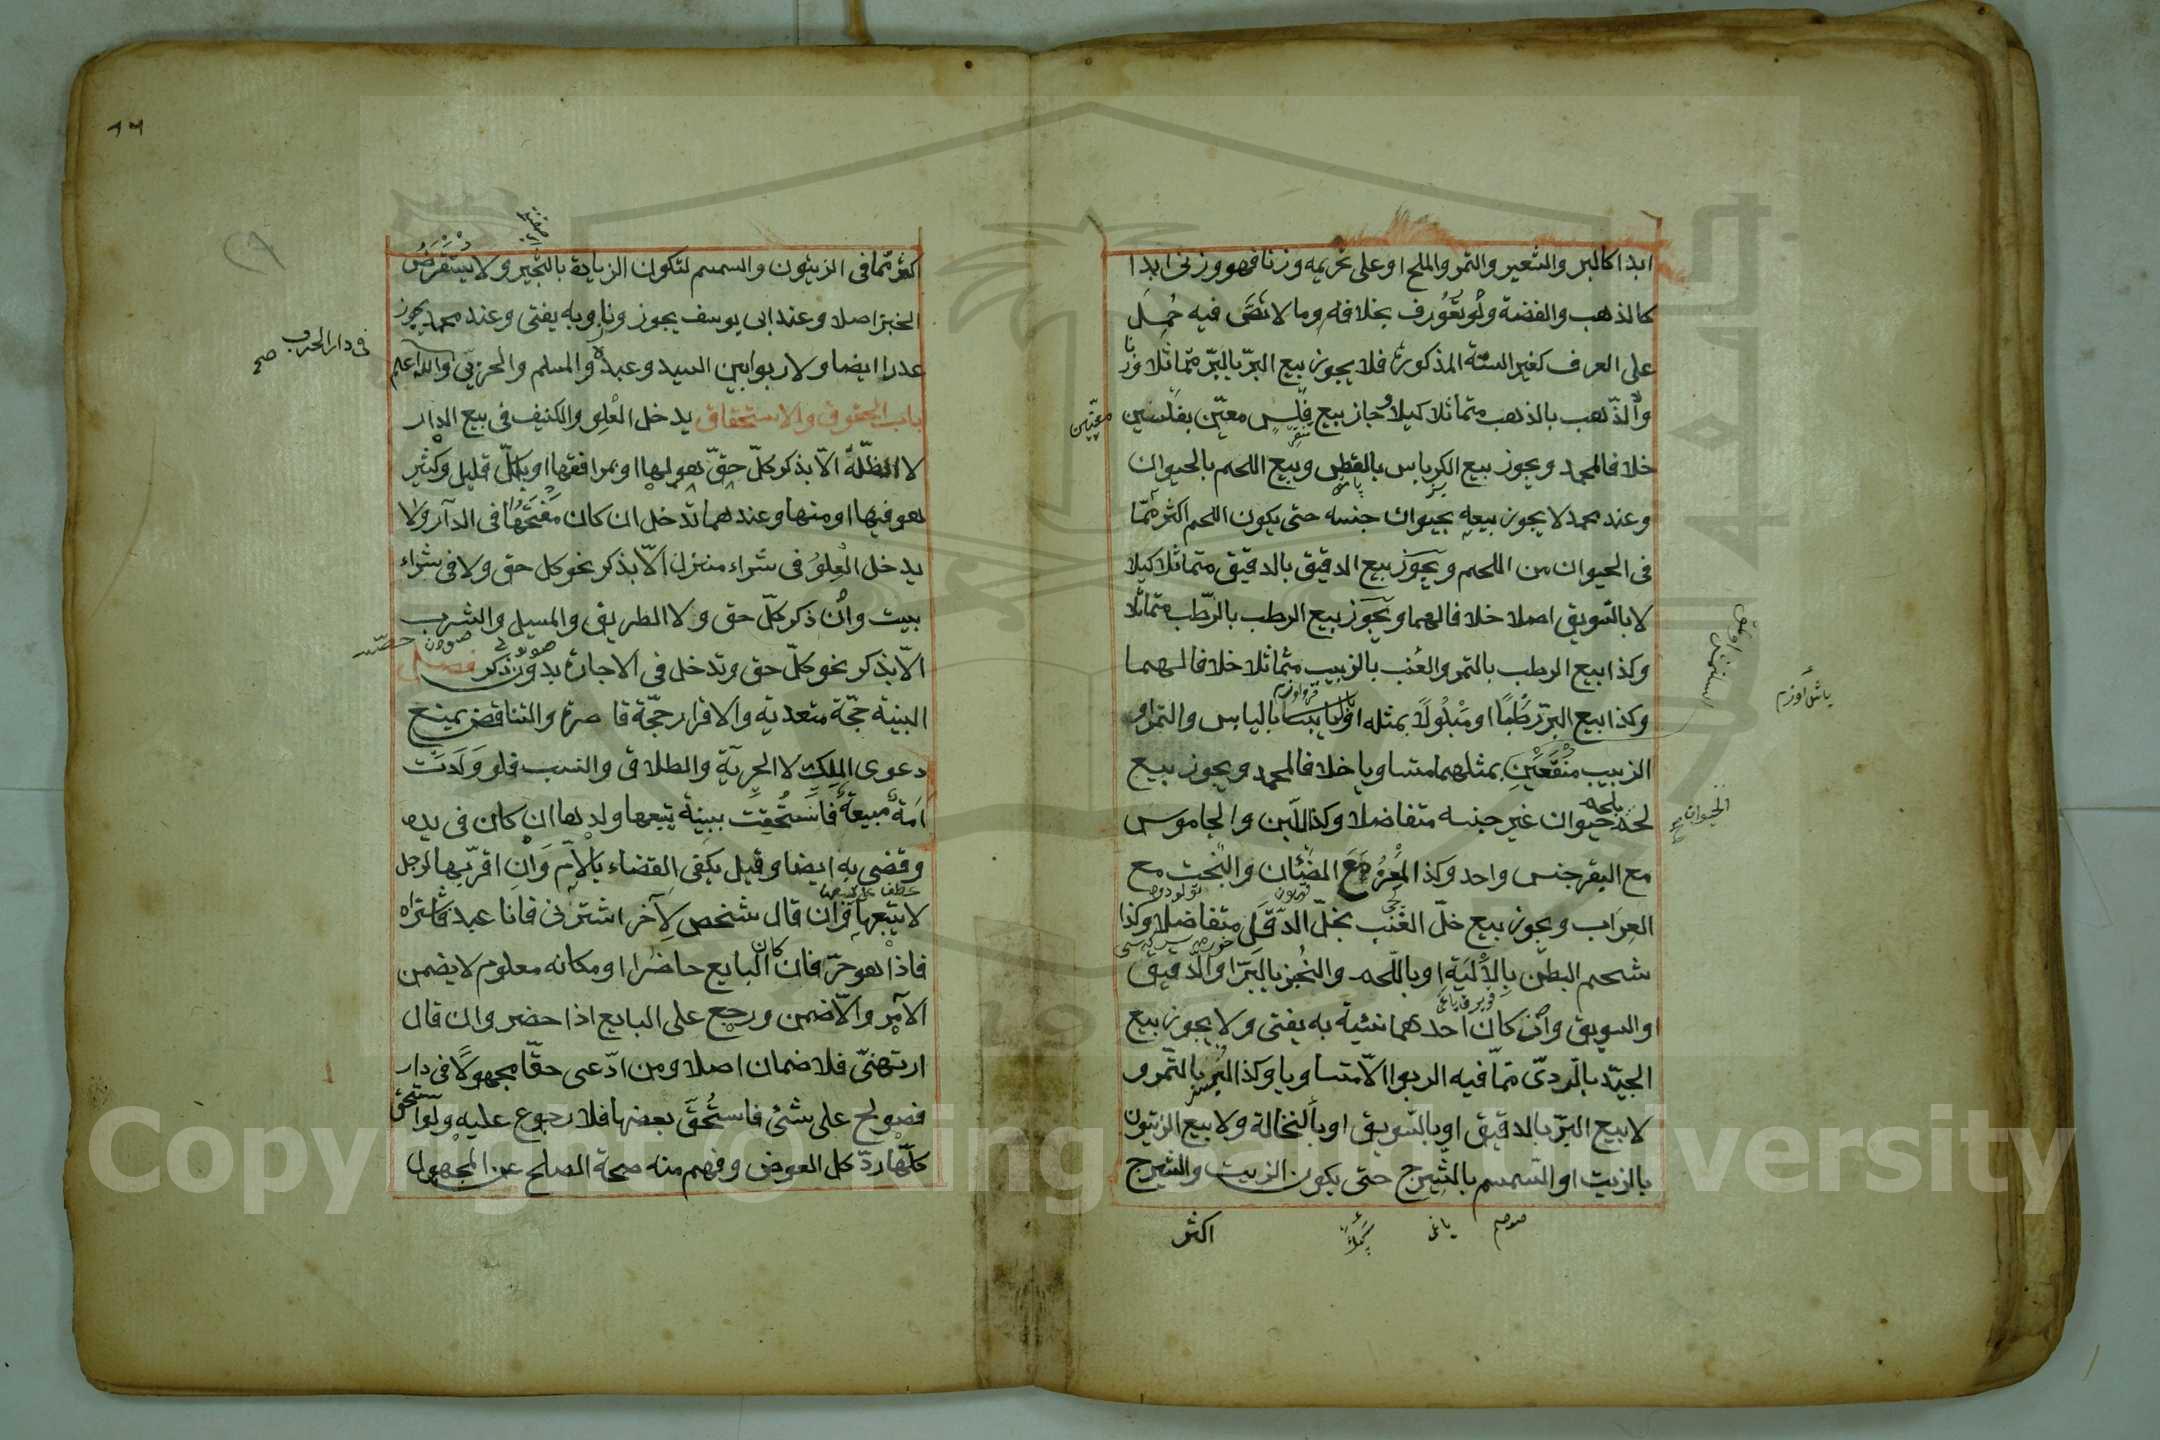 ابدا كالبر والشعير والتمر والملح او على تحريمه وزنا فهو وزني ابدا
كالذهب والفضة ولو تعورف بخلافه وما لا نص فيه حمل
على العرف كغير الستة المذكورة فلا يجوز بيع البرّ بالبرّ متماثلا وزنا
ولا الذّهب بالذهب متماثلا كيلا وجاز بيع فلس معيّن بفلسين
معيّنين
خلافا لمحمد ويجوز بيع الكرباس بالقطن وبيع اللحم بالحيوان
وعند محمد لا يجوز بيعه بحيوان جنسه حتى يكون اللحم اكثر ممّا
فى الحيوان من اللحم ويجوز بيع الدقيق بالدقيق متماثلا كيلا
لا بالسّويق اصلا خلافا لهما ويجوز بيع الرطب بالرّطب متماثلا
وكذا بيع الرطب بالتمر والعنب بالزبيب متماثلا خلافا لهما
وكذا بيع البرّ رَطْبًا او مَبْلُولًا بمثله او باليابس والتمر او
الزبيب منقعين بمثلهما متساويا خلافا لمحمد ويجوز بيع
لحم حيوان بلحم حيوان غير جنسه متفاضلا وكذا اللّبن والجاموس
الحيوان
مع البقر جنس واحد وكذا المَعْزُ مَعَ الضأن والبُخت مع
العِرَاب ويجوز بيع خلّ العنب بخلّ الدّقَل متفاضلا وكذا
شحم البطن بالأَلْيَةِ او باللّحم والخُبز بالبَرّ او الدّقيق
والسويق وان كان احدهما نسئية به يفتى ولا يجوز بيع
الجيّد بالردىّ ممّا فيه الربوا الّا متساويا وكذا البُسْر بالتّمر و
لا بيع البرّ بالدقيق او بالسّويق او بالنخالة ولا بيع الزيتون
بالزيت او السّمسم بالشيرج حتى يكون الزيت والشيرج
اكثر
كثر ممّا فى الزيتون والسمسم لتكون الزيادة بالثجير ولا يُسْتَقْرَضُ
الخبز اصلا وعند ابى يوسف يجوز وزنا وبه يفتى وعند محمد يجوز
عددا ايضا ولا ربوا بين السيد وعبده والمسلم والحربيّ والله اعلم
فى دار الحرب صح
باب الحقوق والاستحقاق يدخل العُلِو والكنيف فى بيع الدار
لا الظلّة الّا بذكر كلّ حقّ هو لها او بمرافقها او بكلّ قليل وكثير
هو فيها او منها وعندهما تدخل ان كان مَفْتَحُهَا فى الدار ولا
يدخل العُِلوُ فى شراء منزل الّا بذكر نحو كل حق ولا فى شراء
بيت وان ذكر كلّ حق ولا الطريق والمسيل والشرب
الّا بذكر نحو كلّ حق وتدخل فى الاجارة بدون ذكر فصل
البينة حجّة متعدية والاقرار حجّة قاصرة والتناقض يمنع
دعوى المِلك لا الحرية والطلاق والنسب فلو وَلَدت
اَمَةٌ مبيعةٌ فاستُحِقت ببينة يتبعها ولدها ان كان فى يده
وقضى به ايضا وقيل يكفى القضاء بالاُمّ وَان اقرّ بها لرجل
لا يتبعها وان قال شخص لآخر اشترنى فانا عبد فاشتراه
فاذا هو حرّ فان كان البايع حاضرا او مكانه معلوم لا يضمن
الآمر والّا ضمن ورجع على البايع اذا حضر وان قال
ارتهنّى فلا ضمان اصلا ومن ادّعى حقّا مجهولًا فى دار
فصولح على شئ فاستُحقَّ بعضها فلا رجوع عليه ولو استحق
كلّها ردّ كل العوض وفهم منه صحة الصلح عن المجهول